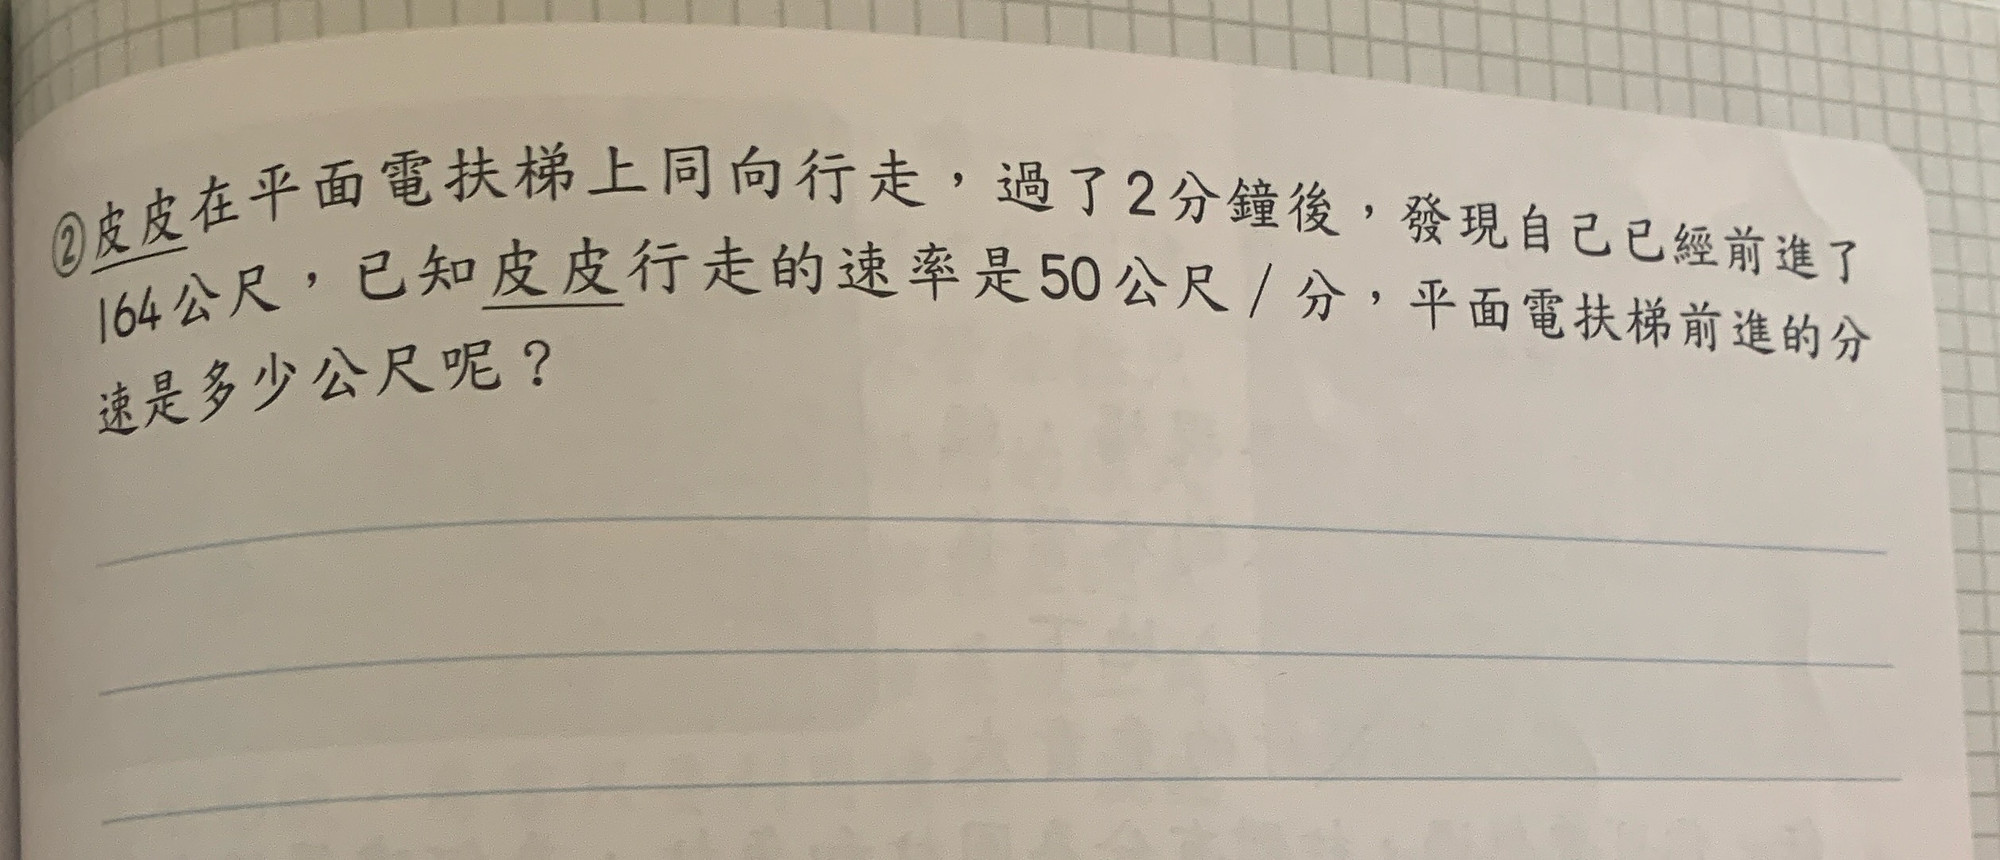 ②皮皮在平面電扶梯上同向行走，過了2分鐘後，發現自己已經前進了
164公尺，已知皮皮行走的速率是50公尺/分，平面電扶梯前進的分
速是多少公尺呢？